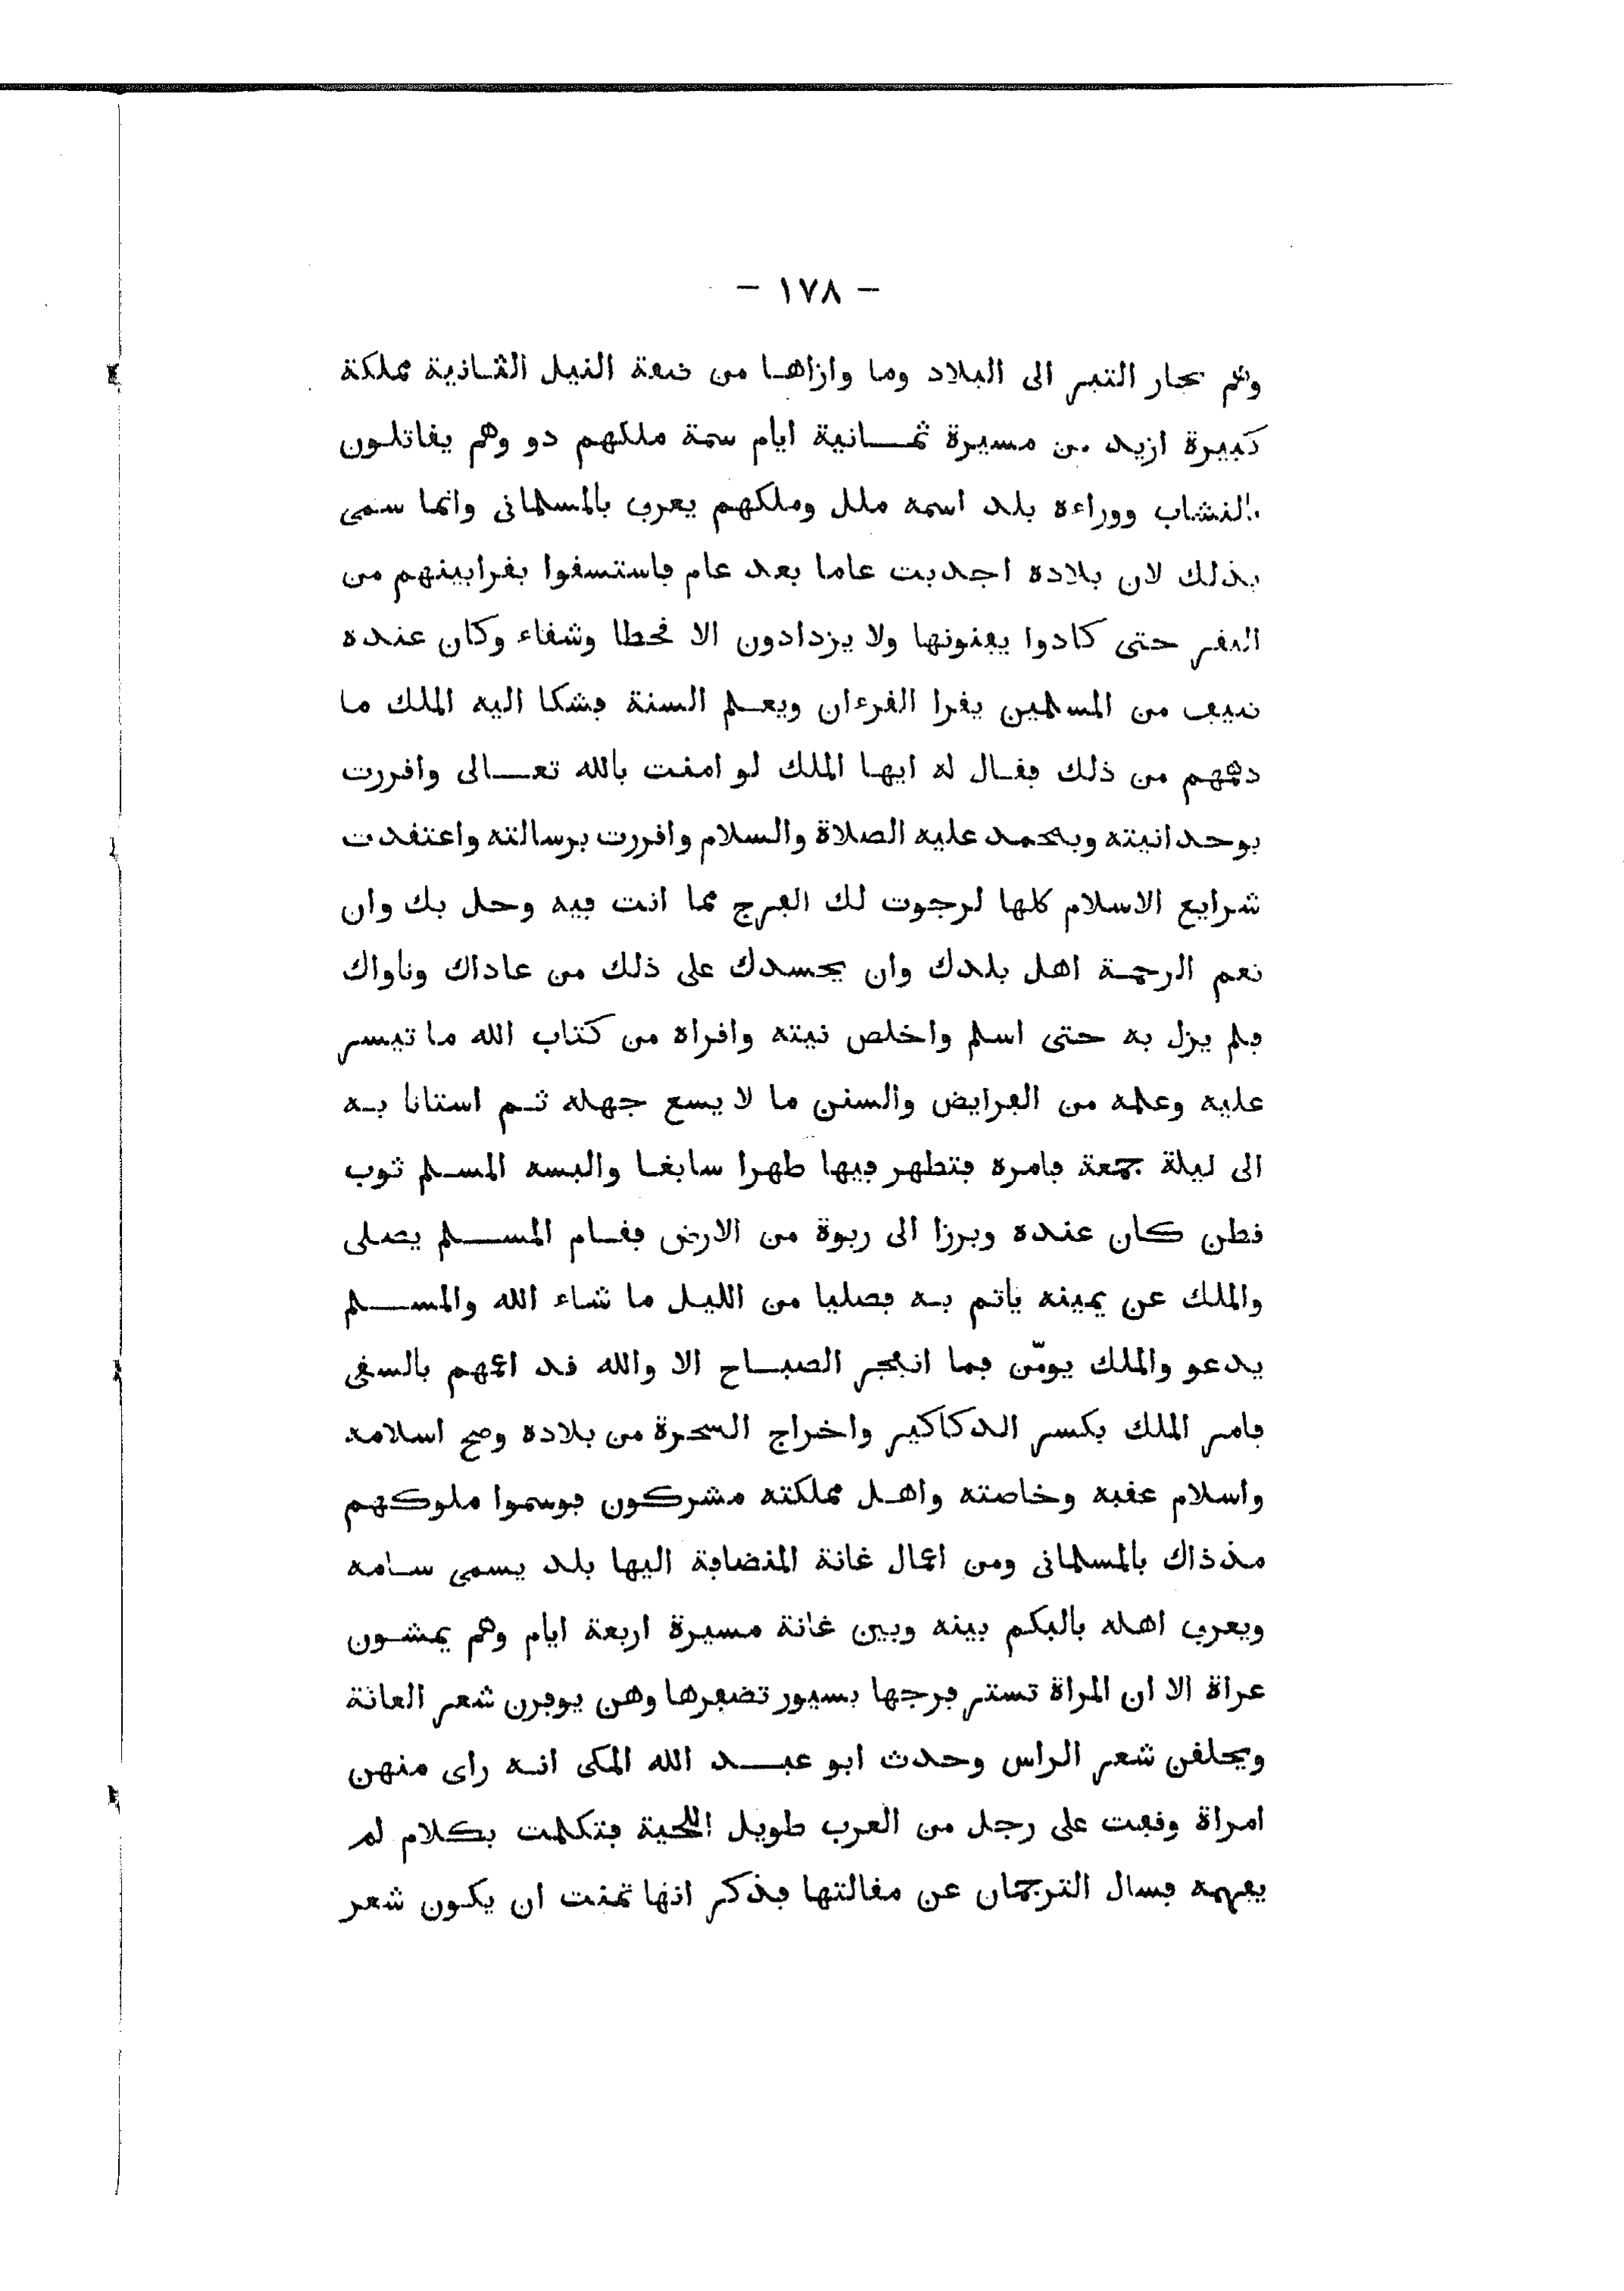 - ١٧٨ -
وهم تجار التبر الى البلاد وما وازاها من ضفة النيل الثانية مملكة
كبيرة ازيد من مسيرة ثمانية ايام سمة ملكهم دو وهم يقاتلون
بالنشاب ووراءه بلد اسمه ملل وملكهم يعرف بالمسلمانى وانما سمى
بذلك لان بلاده اجدبت عاما بعد عام فاستسقوا بقرابينهم من
البقر حتى كادوا يفنونها ولا يزدادون الا قحطا وشقاء وكان عنده
ضيف من المسلمين يقرا القرءان ويعلم السنة فشكا اليه الملك ما
دهمهم من ذلك فقال له ايها الملك لو امنت بالله تعالى واقررت
بوحدانيته وبمحمد عليه الصلاة والسلام واقررت برسالته واعتقدت
شرايع الاسلام كلها لرجوت لك الفرج مما انت فيه وحل بك وان
تعم الرحمة اهل بلدك وان يحسدك على ذلك من عاداك وناواك
فلم يزل به حتى اسلم واخلص نيته واقراه من كتاب الله ما تيسر
عليه وعلمه من الفرايض والسنن ما لا يسع جهله ثم استانا به
الى ليلة جمعة فامره فتطهر فيها طهرا سابغا والبسه المسلم ثوب
قطن كان عنده وبرزا الى ربوة من الارض فقام المسلم يصلى
والملك عن يمينه ياتم به فصليا من الليل ما شاء الله والمسلم
يدعو والملك يومّن فما انفجر الصباح الا والله قد اعمهم بالسقى
فامر الملك بكسر الدكاكير واخراج السحرة من بلاده وصح اسلامه
واسلام عقبه وخاصته واهل مملكته مشركون فوسموا ملوكهم
مذ ذاك بالمسلمانى ومن اعمال غانة المنضافة اليها بلد يسمى سامه
ويعرف اهله بالبكم بينه وبين غانة مسيرة اربعة ايام وهم يمشون
عراة الا ان المراة تستر فرجها بسيور تضفرها وهن يوفرن شعر العانة
ويحلقن شعر الراس وحدث ابو عبد الله المكى انه راى منهن
امراة وقفت على رجل من العرب طويل اللحية فتكلمت بكلام لم
يفهمه فسال الترجمان عن مقالتها فذكر انها تمنت ان يكون شعر